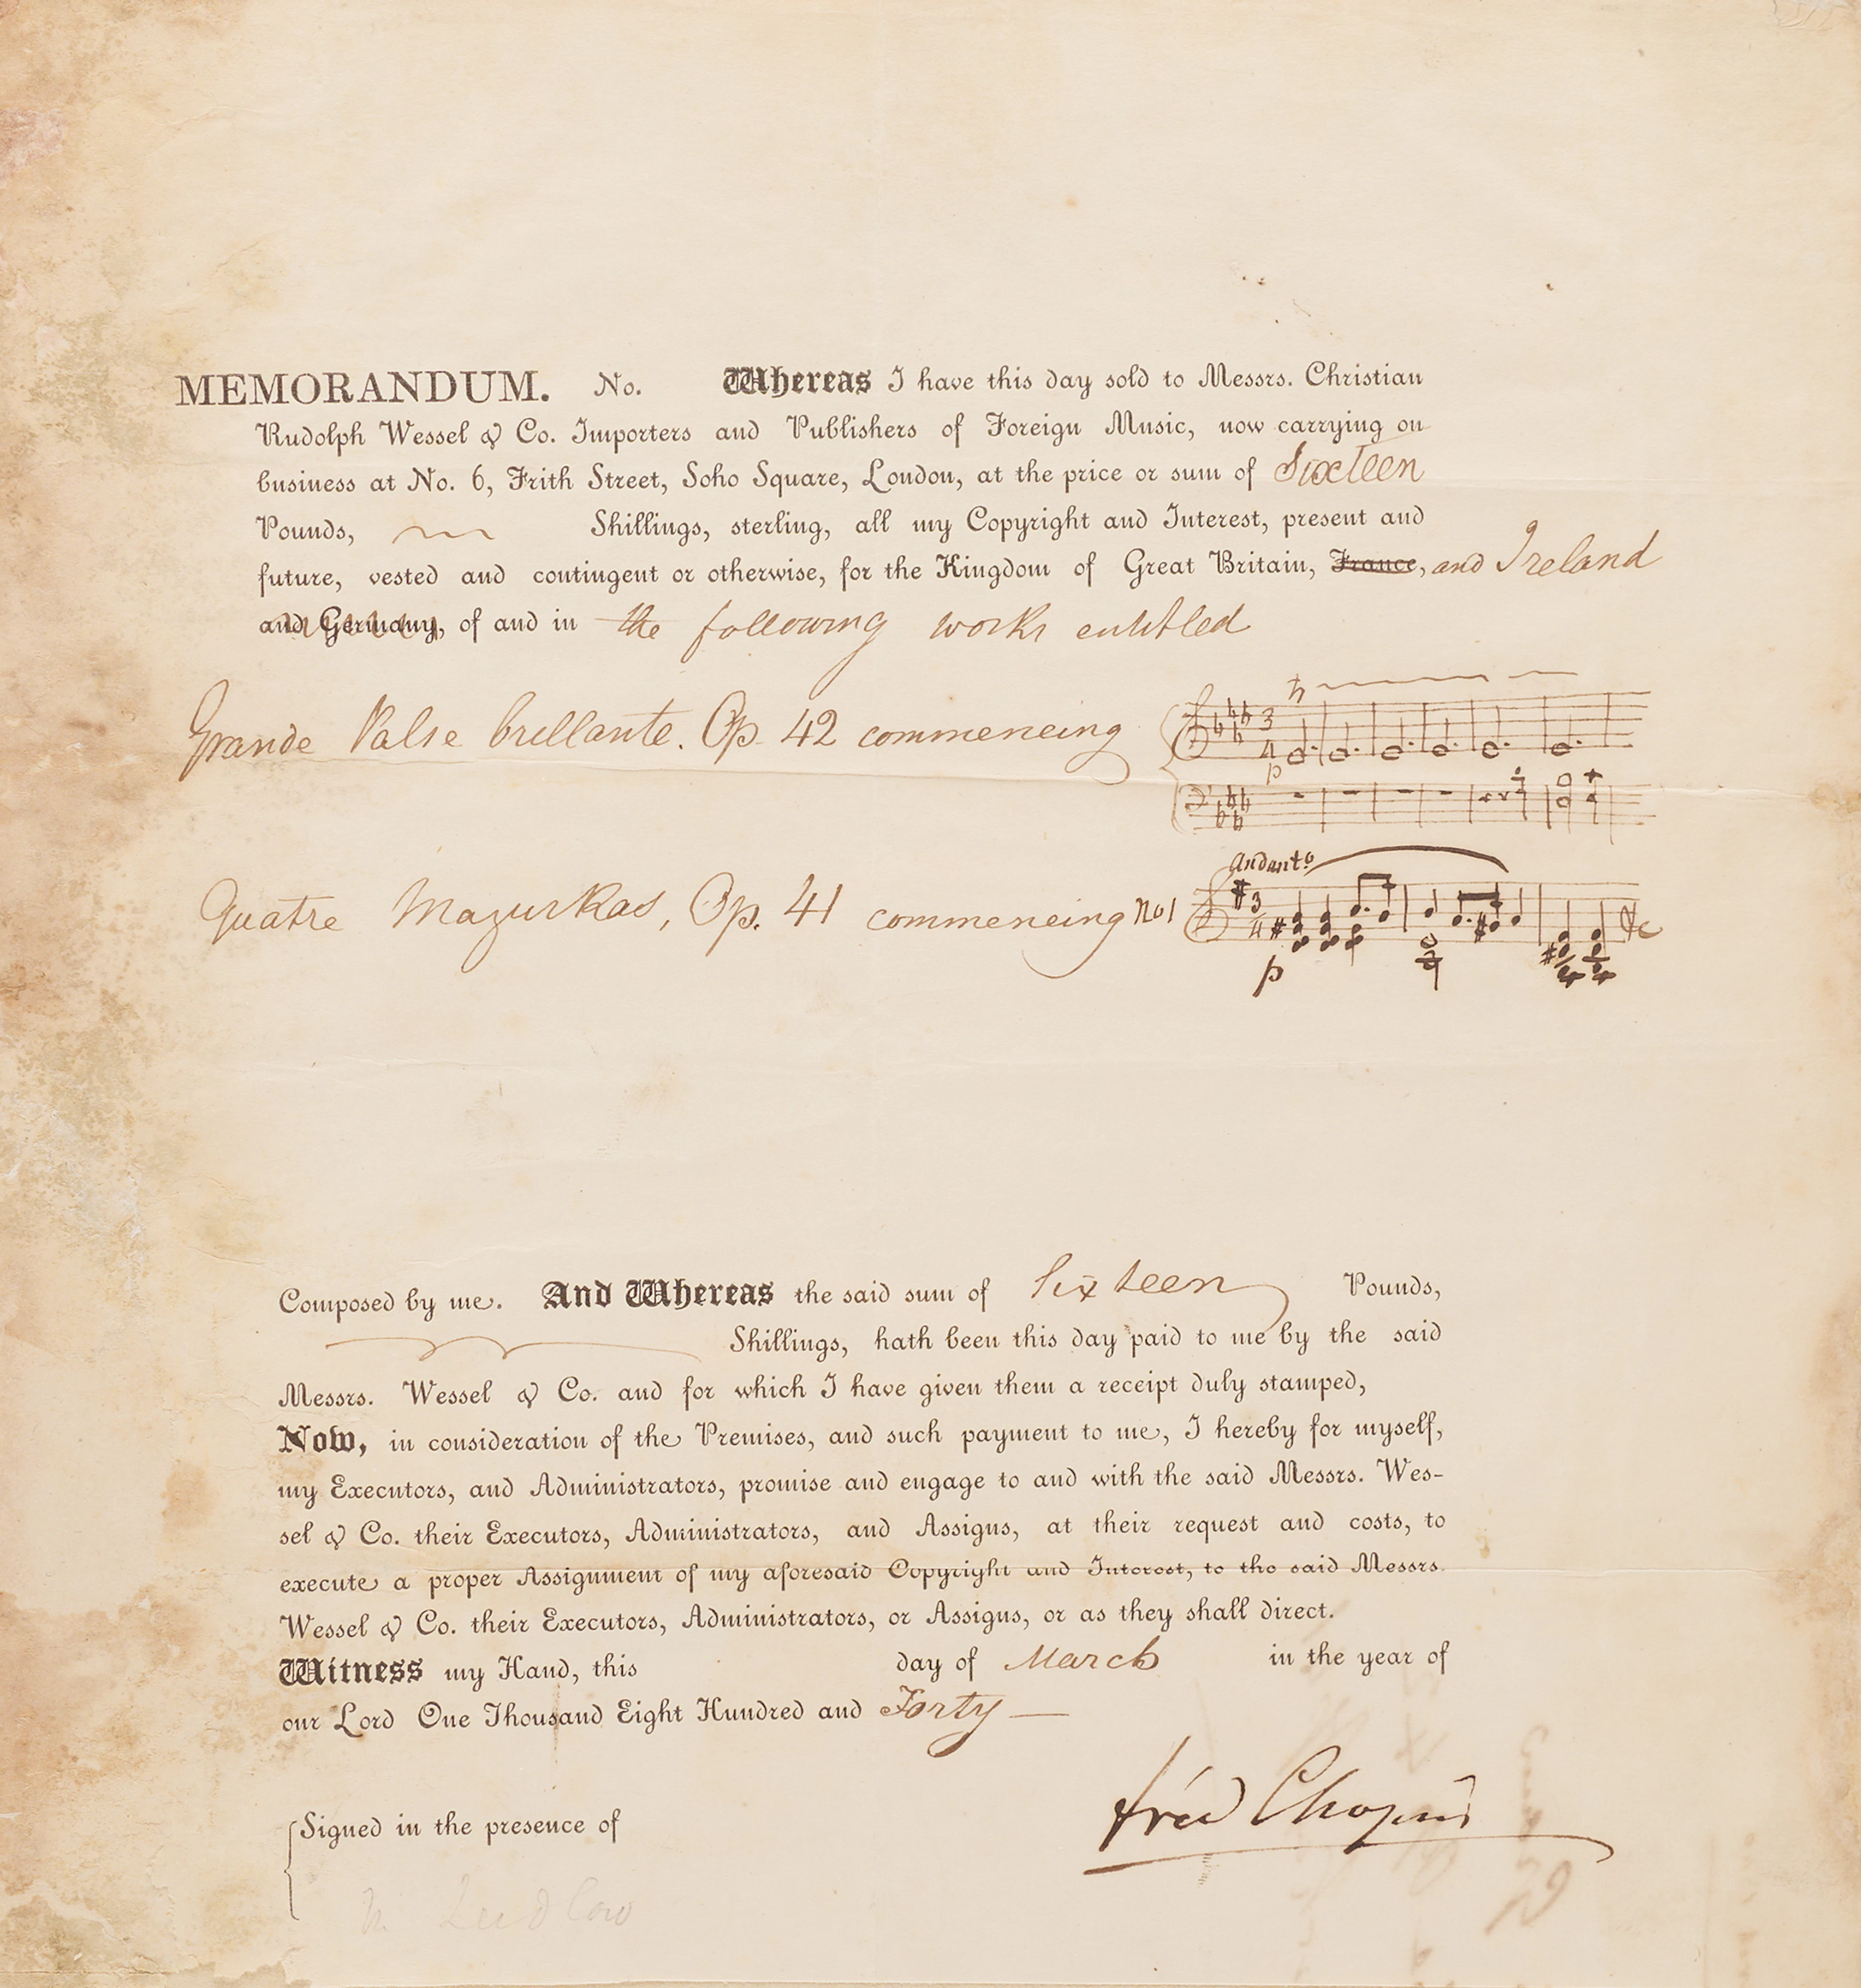 MEMORANDUM. No. Whereas I have this day sold to Messrs. Christian
Rudolph Wessel & Co. Importers and Publishers of Foreign Music, now carrying on
business at No. 6, Frith Street, Soho Square, London, at the price or sum of Sixteen
Pounds, Shillings, sterling, all my Copyright and Interest, present and
future, vested and contingent or otherwise, for the Kingdom of Great Britain, France, and Ireland
and Germany, of and in the following works entitled
Grande Valse brillante. Op. 42 commencing
3 4
p
Andant.o
Quatre Mazurkas, Op. 41 commencing No 1 3 4 &c
p
Composed by me. And Whereas the said sum of Sixteen Pounds,
Shillings, hath been this day paid to me by the said
Messrs. Wessel & Co. and for which I have given them a receipt duly stamped,
Now, in consideration of the Premises, and such payment to me, I hereby for myself,
my Executors, and Administrators, promise and engage to and with the said Messrs. Wes-
sel & Co. their Executors, Administrators, and Assigns, at their request and costs, to
execute a proper Assignment of my aforesaid Copyright and Interest, to the said Messrs.
Wessel & Co. their Executors, Administrators, or Assigns, or as they shall direct.
Witness my Hand, this day of March in the year of
our Lord One Thousand Eight Hundred and Forty
fréd Chopin
Signed in the presence of
Ludlow